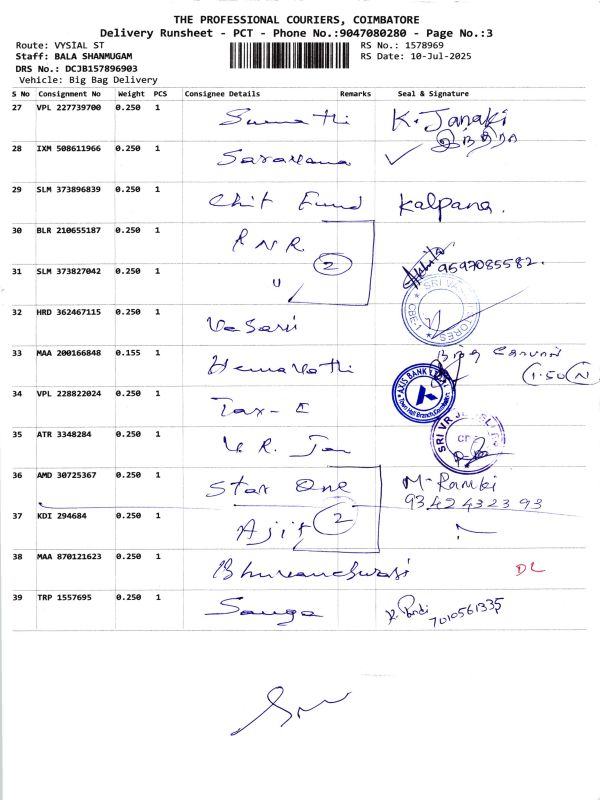 THE PROFESSIONAL COURIERS, COIMBATORE
Delivery Runsheet - PCT - Phone No.:9047080280 - Page No.:3
Route: VYSIAL ST
RS No.: 1578969
Staff: BALA SHANMUGAM
RS Date: 10-Jul-2025
DRS No.: DCJB157896903
Vehicle: Big Bag Delivery
S No Consignment No Weight PCS Consignee Details Remarks Seal & Signature
27 VPL 227739700 0.250 1 Sumathi K. Janaki
28 IXM 508611966 0.250 1 Saravana
29 SLM 373896839 0.250 1 Chit Fund Kalpana.
30 BLR 210655187 0.250 1 RNR
2
31 SLM 373827042 0.250 1 9597085582.
32 HRD 362467115 0.250 1
33 MAA 200166848 0.155 1 Hemavathi
1.50 N
AXIS BANK
34 VPL 228822024 0.250 1 Tax-E
SRI VR
35 ATR 3348284 0.250 1
36 AMD 30725367 0.250 1 Star One M. Ramki
93 42 43 23 93
37 KDI 294684 0.250 1 Ajit 2
38 MAA 870121623 0.250 1 DL
39 TRP 1557695 0.250 1 7010561335